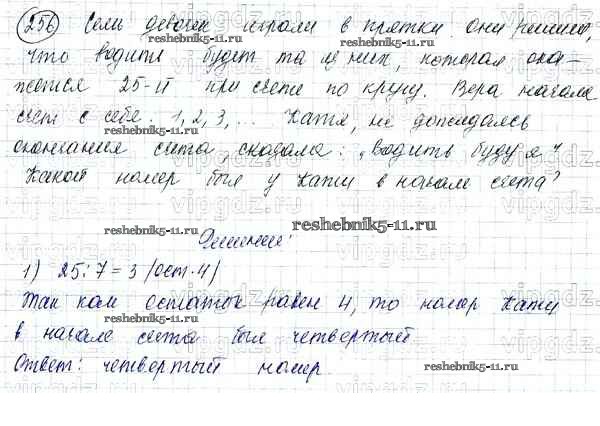 256 Семь девочек играли в прятки. Они решили,
reshebnik5-11.ru
что водить будет та из них, которая ока-
жется 25-й при счете по кругу. Вера начала
счет с себя: 1, 2, 3, ... Катя, не дождавшись
окончания счета сказала: „Водить буду я“
reshebnik5-11.ru
Какой номер был у Кати в начале счета?
reshebnik5-11.ru
Решение:
1) 25:7=3 (ост.4)
Так как остаток равен 4, то номер Кати
в начале счета был четвертый
reshebnik5-11.ru
Ответ: четвертый номер.